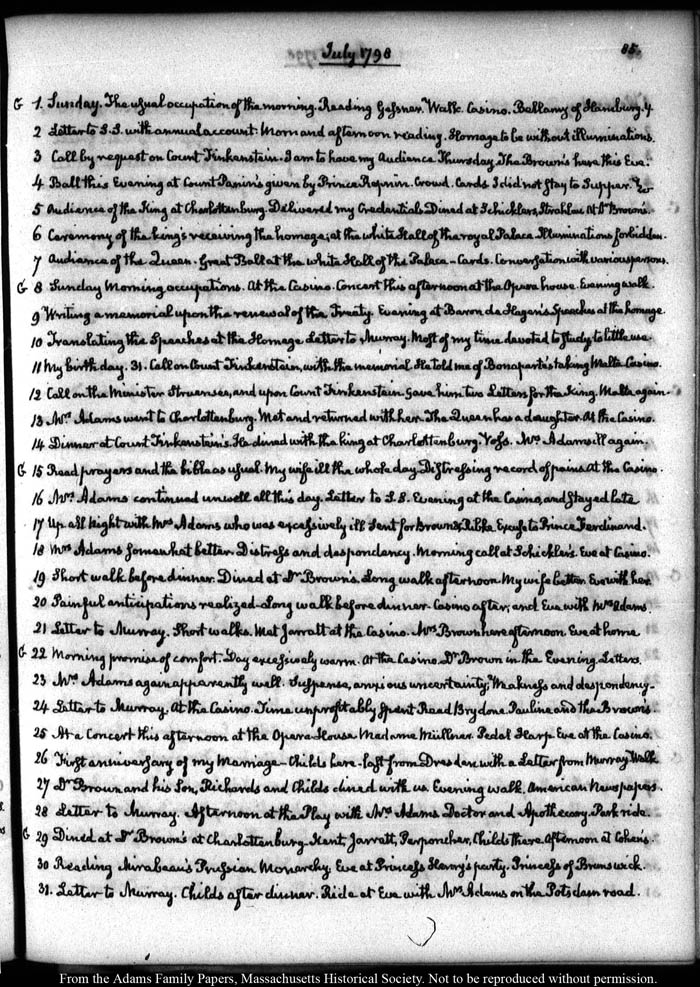 July 1798
85.
G 1. Sunday. The usual occupation of the morning. Reading Gessner. Walk. Casino. Bellamy of Hamburg. 4
2 Letter to S.S. with annual account. Morn and afternoon reading. Homage to be without illuminations.
3 Call by request on Count Finkenstein. I am to have my Audience Thursday. The Brown's here this Eve.
4 Ball this Evening at Count Panin's given by Prince Repnin. Crowd. Cards. I did not stay to Supper.
5 Audience of the King at Charlottenburg. Delivered my Credentials Dined at Schickler's, Stralau. At Dr Brown's.
6 Ceremony of the king's receiving the homage; at the white Hall of the royal Palace. Illuminations forbidden.
7 Audience of the Queen. Great Ball at the white Hall of the Palace – Cards. Conversation with various persons.
G 8 Sunday Morning occupations. At the Casino. Concert this afternoon at the Opera house. Evening walk.
9 Writing a memorial upon the renewal of the Treaty. Evening at Baron de Hagen's Speeches at the homage.
10 Translating the Speeches at the Homage Letter to Murray. Most of my time devoted to study to little use.
11 My birth day. 31. Call on Count Finkenstein, with the memorial. He told me of Bonaparte's taking Malta. Casino.
12 Call on the Minister Struensee, and upon Count Finkenstein. Gave him two Letters for the King. Malta again.
13 Mrs Adams went to Charlottenburg. Met and returned with her. The Queen has a daughter. At the Casino.
14 Dinner at Count Finkenstein's. He dined with the king at Charlottenburg. Voss. Mrs Adams ill again.
G 15 Read prayers and the bible as usual. My wife ill the whole day. Distressing record of pains. At the Casino.
16 Mrs Adams continued unwell all this day. Letter to S.S. Evening at the Casino, and stayed late
17 Up all Night with Mrs Adams who was excessively ill. Sent for Brown & Ribke. Excuse to Prince Ferdinand.
18 Mrs Adams somewhat better. Distress and despondency. Morning call at Schickler's. Eve at Casino.
19. Short walk before dinner. Dined at Dr Brown's. Long walk afternoon. My wife better. Eve with her.
20 Painful anticipations realized – Long walk before dinner. Casino after; and Eve with Mrs Adams.
21 Letter to Murray. Short walks. Met Jarratt at the Casino. Mrs Brown here afternoon. Eve at home
G 22 Morning promise of comfort. Day excessively warm. At the Casino. Dr Brown in the Evening. Letters.
23 Mrs Adams again apparently well. Suspense, anxious uncertainty; Weakness and despondency –
24 Letter to Murray. At the Casino. Time unprofitably spent. Read Brydone. Pauline and the Brown's.
25 At a Concert this afternoon at the Opera-House. Madame Müllner. Pedal Harp. Eve at the Casino.
26 First anniversary of my Marriage – Childs here – last from Dresden with a Letter from Murray. Walk
27 Dr Brown and his Son, Richards and Childs dined with us. Evening walk. American Newspapers.
28 Letter to Murray. Afternoon at the Play with Mrs Adams. Doctor and Apothecary. Park ride.
G 29 Dined at Dr Brown's at Charlottenburg. Kent, Jarratt, Perponcher, Childs there. Afternoon at Cohen's.
30 Reading Mirabeau's Prussian Monarchy. Eve at Princess Henry's party. Princess of Brunswick.
31. Letter to Murray. Childs after dinner. Ride at Eve with Mrs Adams on the Potsdam road.
From the Adams Family Papers, Massachusetts Historical Society. Not to be reproduced without permission.